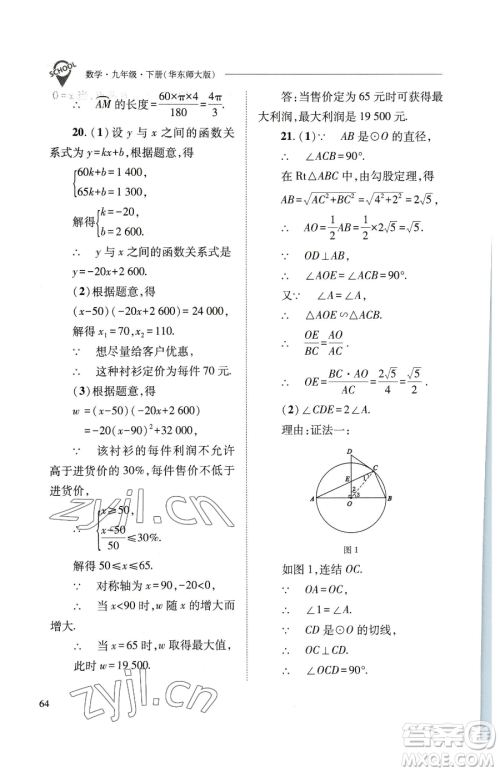 SCHOOL
数学·九年级·下册(华东师大版)
∴ AM的长度=60×π×4/180=4π/3.
20. (1)设 y 与 x 之间的函数关
系式为 y=kx+b,根据题意,得
{60k+b=1 400,
65k+b=1 300,
解得{k=-20,
b=2 600.
∴ y 与 x 之间的函数关系式是
y=-20x+2 600.
(2)根据题意,得
(x-50)(-20x+2 600)=24 000,
解得 x₁=70,x₂=110.
∵ 想尽量给客户优惠,
∴ 这种衬衫定价为每件 70 元.
(3)根据题意,得
w=(x-50)(-20x+2 600)
=-20(x-90)²+32 000,
∵ 该衬衫的每件利润不允许
高于进货价的 30%,每件售价不低于
进货价,
∴ {x≥50,
x-50/50≤30%.
解得 50≤x≤65.
∵ 对称轴为 x=90,-20<0,
∴ 当 x<90 时,w 随 x 的增大而
增大.
∴ 当 x=65 时,w 取得最大值,
此时 w=19 500.
64
答:当售价定为 65 元时可获得最
大利润,最大利润是 19 500 元.
21. (1)∵ AB 是⊙O 的直径,
∴ ∠ACB=90°.
在 Rt△ABC 中,由勾股定理,得
AB=√AC²+BC²=√4²+2²=2√5,
∴ AO=1/2AB=1/2×2√5=√5.
∵ OD⊥AB,
∴ ∠AOE=∠ACB=90°.
又∵ ∠A=∠A,
∴ △AOE∽△ACB.
∴ OE/BC=AO/AC.
∴ OE=BC·AO/AC=2√5/4=√5/2.
(2)∠CDE=2∠A.
理由:证法一:
D
C
E
2
1
3
A
O
B
图 1
如图 1,连接 OC.
∵ OA=OC,
∴ ∠1=∠A.
∵ CD 是⊙O 的切线,
∴ OC⊥CD.
∴ ∠OCD=90°.
zyjl.cn
zyjl.cn